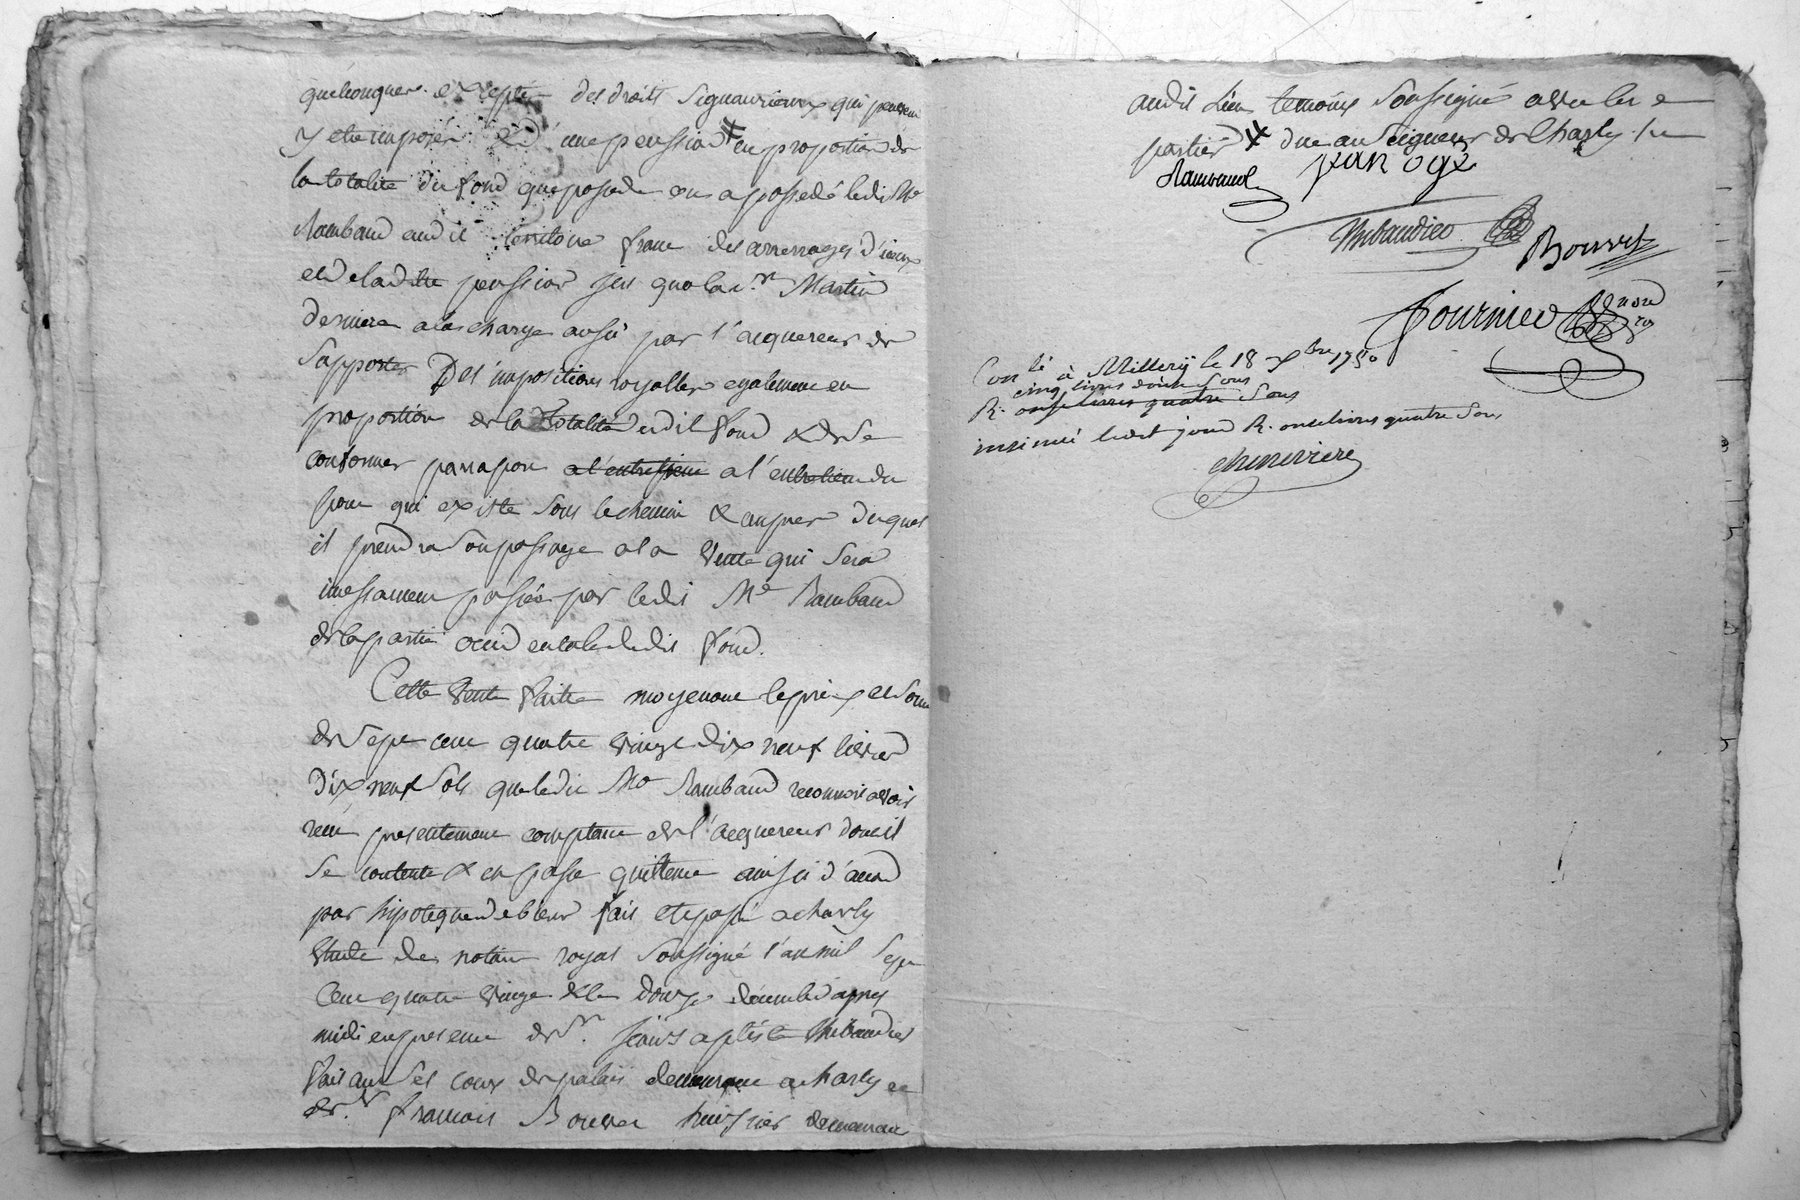 quelconques excepté des droits Seigneuriaux qui peuvent
y etre imposés & d'une pension en proportion de
la totalité du fond que possede ou a possedé ledit Me
Rambaud audit territoire franc des arrerages d'iceux
et de ladite pension jusqu'a la St Martin
derniere a la charge aussi par l'acquereur de
Supporter Des impositions royalles egalement en
proportion de la totalité dudit fond & de se
conformer par rapport a l'entretien a l'entretien du
pont qui existe Sous le chemin & aupres duquel
il prendra Son passage a la Vente qui Sera
incessament passée par ledit Me Rambaud
de la partie occidentale dudit fond.
Cette Vente faitte moyenant le prix et Somme
de Sept cent quatre vingt dix neuf livres
dix neuf Sols que ledit Me Rambaud reconnoit avoir
receu presentement comptant de l'acquereur dont il
Se contente & en passe quittence ainsi d'accord
par hipoteque de bien fait et passé a charly
etude de notaire royal Soussigné l'an mil Sept
Cent quatre Vingt & le douze decembre apres
midi en presence de Sr. Jean Baptiste Thibaudier
faisant Ses cours de palais demeurant a charly et
de Sr. francois Bouvet huissier demeurant
audit Lieu temoins Soussignés avec les
parties due au Seigneur de Charly
Rambaud jean ogé
Thibaudier
Bouvet
Fournier
Conlé à Millery le 18 Xbre 1780
cinq livres douze Sous
R. onze livres quatre Sous
insinué ledit jour R. onze livres quatre Sous
chenevriere